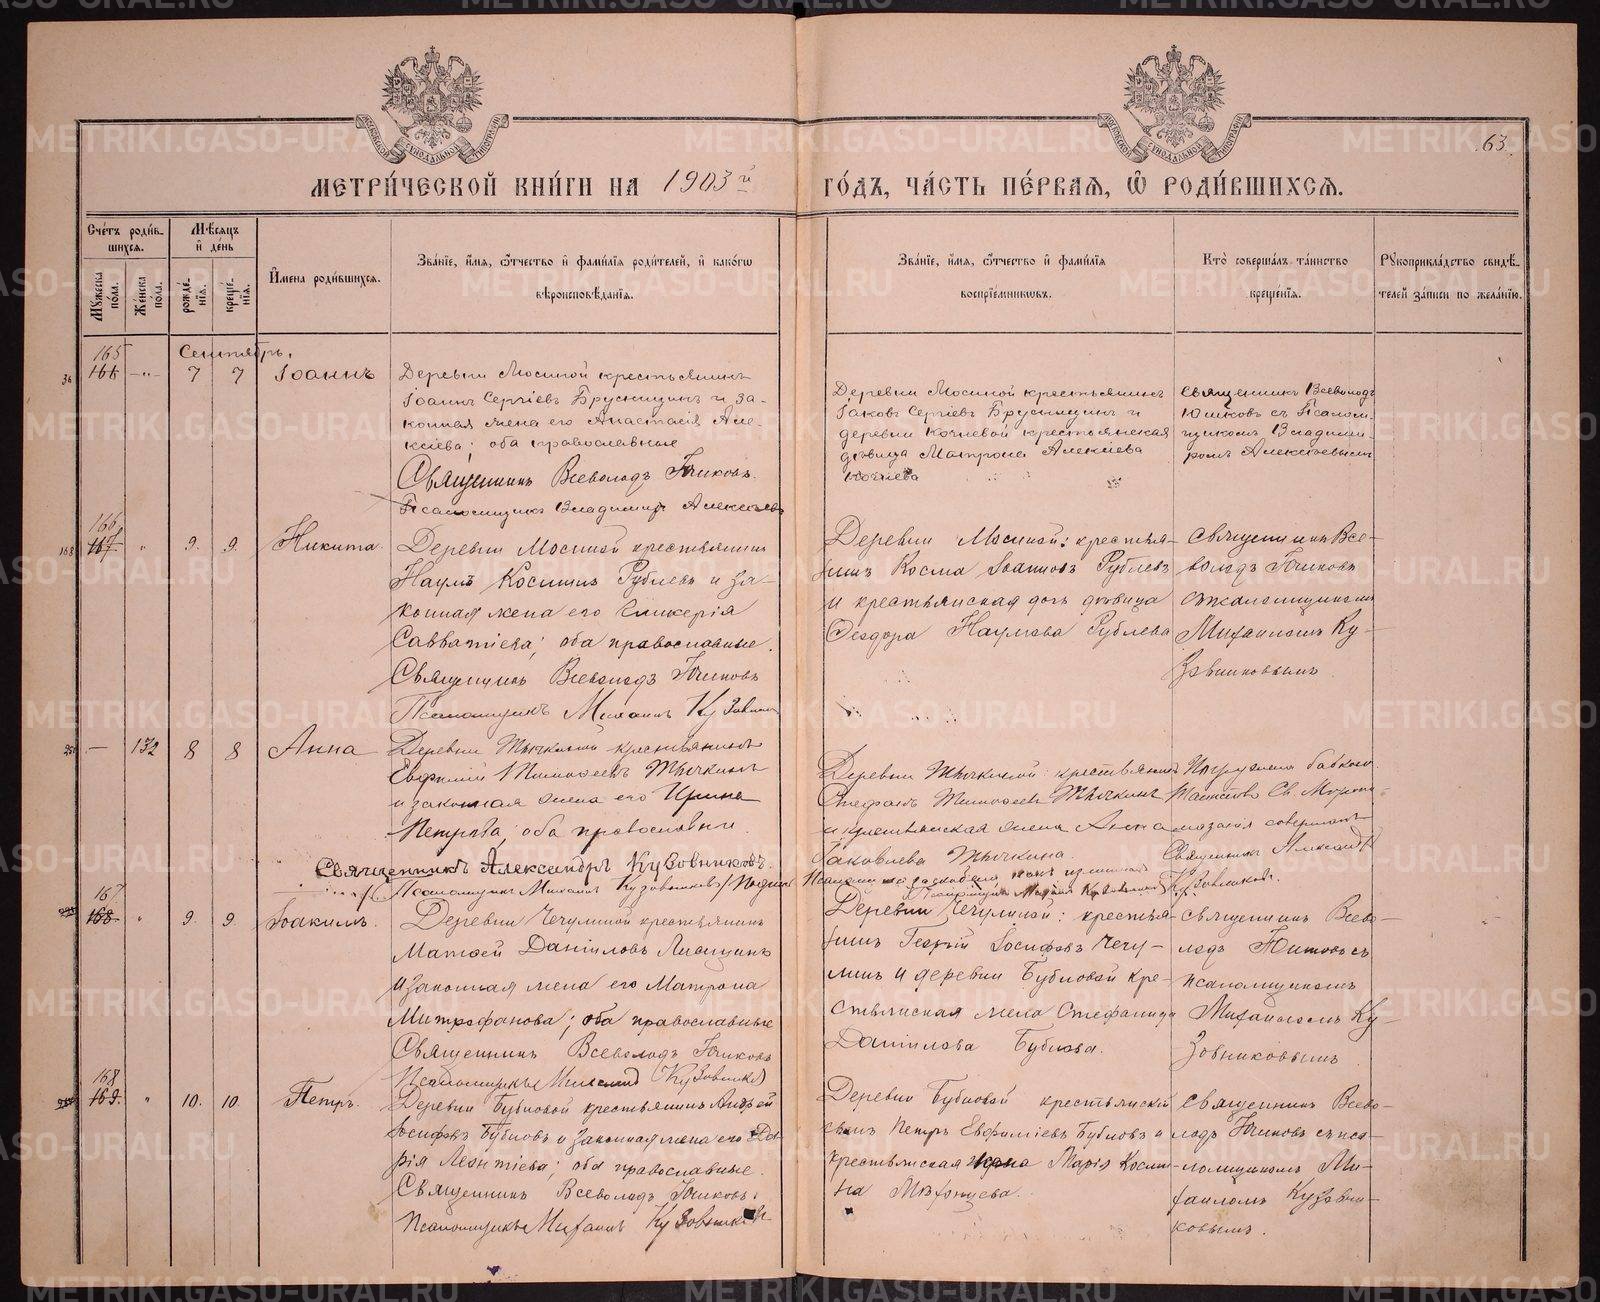 METRIKI.GASO-URAL.RU
МОСКОВСКОЙ СѴНОДАЛЬНОЙ ТИПОГРАФІИ
МЕТРИ́ЧЕСКОЙ КНИ́ГИ НА 1903й ГО́ДЪ, ЧА́СТЬ ПЕ́РВАЯ, Ѽ РОДИ́ВШИХСЯ.
63.
Сче́тъ роди́в-
шихся.
Му́жеска по́ла.
Же́нска по́ла.
Мѣ́сяцъ
и҆ де́нь
рожде́-
нїя.
креще́-
нїя.
И҆мена роди́вшихся.
Зва́нїе, и҆́мя, ѻ҆́тчество и҆ фами́лїя роди́телей, и҆ како́гѡ
вѣроисповѣ́данїя.
Зва́нїе, и҆́мя, ѻ҆́тчество и҆ фами́лїя
воспрїе́мникѡвъ.
Кто̀ соверша́лъ та́инство
креще́нїя.
Рꙋкоприкла́дство свидѣ́-
телей за́писи по жела́нїю.
Сентябрь.
165
166 —"— 7 7 Іоаннъ
Деревни Мосиной крестьянинъ
Іоаннъ Сергіевъ Брусницинъ и за-
конная жена его Анастасія Але-
ксіева; оба православные
Священникъ Всеволодъ Юшковъ.
Псаломщикъ Владимиръ Алексѣевъ
Деревни Мосиной крестьянинъ
Іаковъ Сергіевъ Брусницинъ и
деревни Кочневой крестьянская
дѣвица Матрона Алексіева
Кочнева
Священникъ Всеволодъ
Юшковъ съ Псалом-
щикомъ Владими-
ромъ Алексѣевымъ
166
167. " 9. 9. Никита.
Деревни Мосиной крестьянинъ
Наумъ Косминъ Рублевъ и за-
конная жена его Гликерія
Савватіева; оба православные.
Священникъ Всеволодъ Юшковъ
Псаломщикъ Михаилъ Кузовник
Деревни Мосиной: крестья-
нинъ Косма Іоанновъ Рублевъ
и крестьянская дочь дѣвица
Ѳеодора Наумова Рублева
Священникъ Все-
володъ Юшковъ
съ псаломщикомъ
Михаиломъ Ку-
зовниковымъ
— 132 8 8 Анна
Деревни Тычкиной крестьянинъ
Евфимій Тимоѳеевъ Тычкинъ
и законная жена его Ирина
Петрова, оба православны.
Священникъ Александръ Кузовниковъ.
Псаломщикъ Михаилъ Кузовниковъ
Деревни Тычкиной: крестьянинъ
Стефанъ Тимоѳеевъ Тычкинъ
и крестьянская жена Анна
Іаковлева Тычкина.
Погружена бабкою.
Таинство Св. Миропо-
мазанія совершалъ
Священникъ Александръ
Кузовниковъ.
167
168. " 9. 9. Іоакимъ.
Деревни Чечулиной крестьянинъ
Матѳей Даніиловъ
и законная жена его Матрона
Митрофанова; оба православные
Священникъ Всеволодъ Юшковъ
Псаломщикъ Михаилъ Кузовников
Деревни Чечулиной: крестья-
нинъ Георгій Іосифовъ Чечу-
линъ и деревни Бубновой кре-
стьянская жена Стефанида
Даніилова Бубнова.
Священникъ Всево-
лодъ Юшковъ съ
псаломщикомъ
Михаиломъ Ку-
зовниковымъ
168
169. " 10. 10. Петръ.
Деревни Бубновой крестьянинъ Андрей
Іосифовъ Бубновъ и законная жена его Да-
рія Леонтіева; оба православные.
Священникъ Всеволодъ Юшковъ.
Псаломщикъ Михаилъ Кузовниковъ
Деревни Бубновой крестьянскій
сынъ Петръ Евфиміевъ Бубновъ и
крестьянская жена Марія Косми-
на
Священникъ Всево-
лодъ Юшковъ съ пса-
ломщикомъ Ми-
хаиломъ Кузовни-
ковымъ.